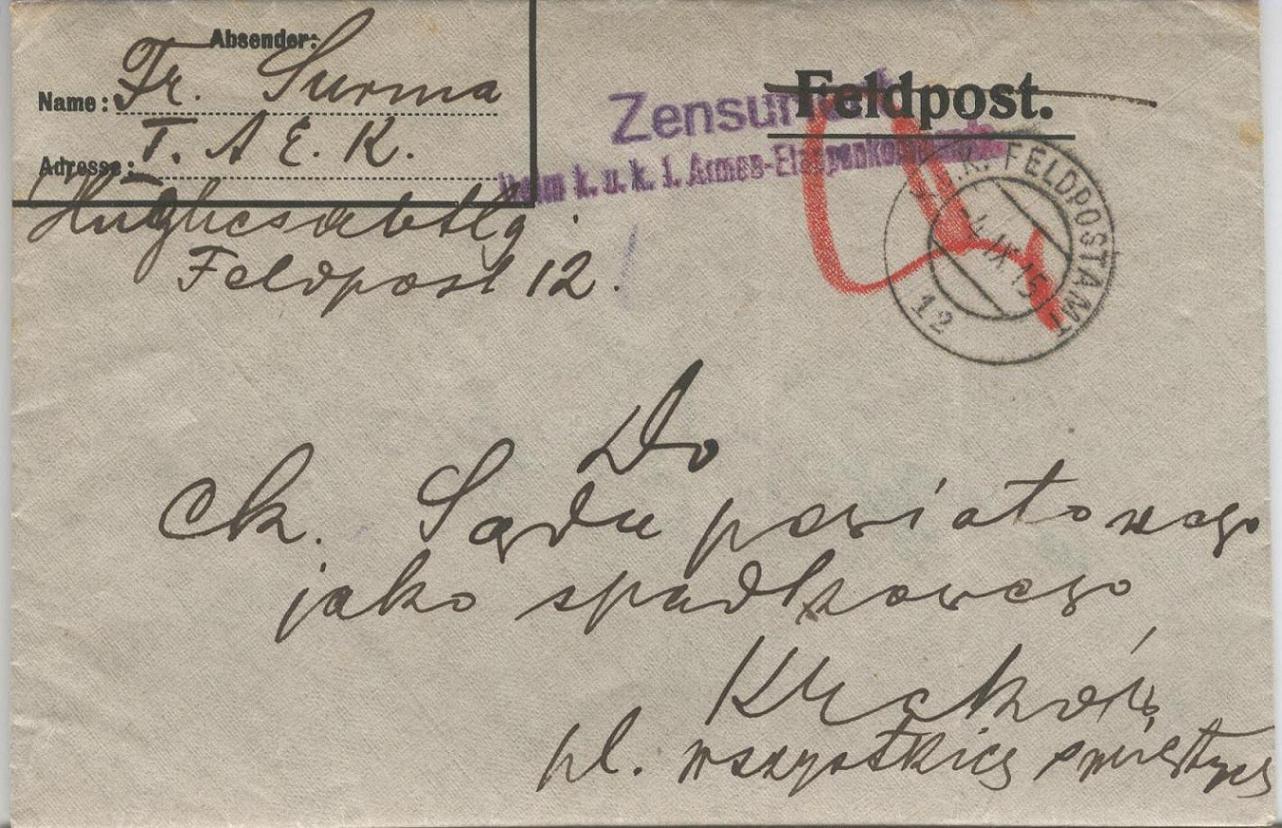 Absender:
Name: Fr. Surma
Adresse: I. A E. K.
Feldpost 12.
Zensuriert
beim k. u. k. 1. Armee-Etappenkommando
Feldpost.
K. FELDPOSTAMT
4 IX 15
12
Do
Ck. Sądu powiatowego
jako spadkowego
Kraków
pl. wszystkich świętych